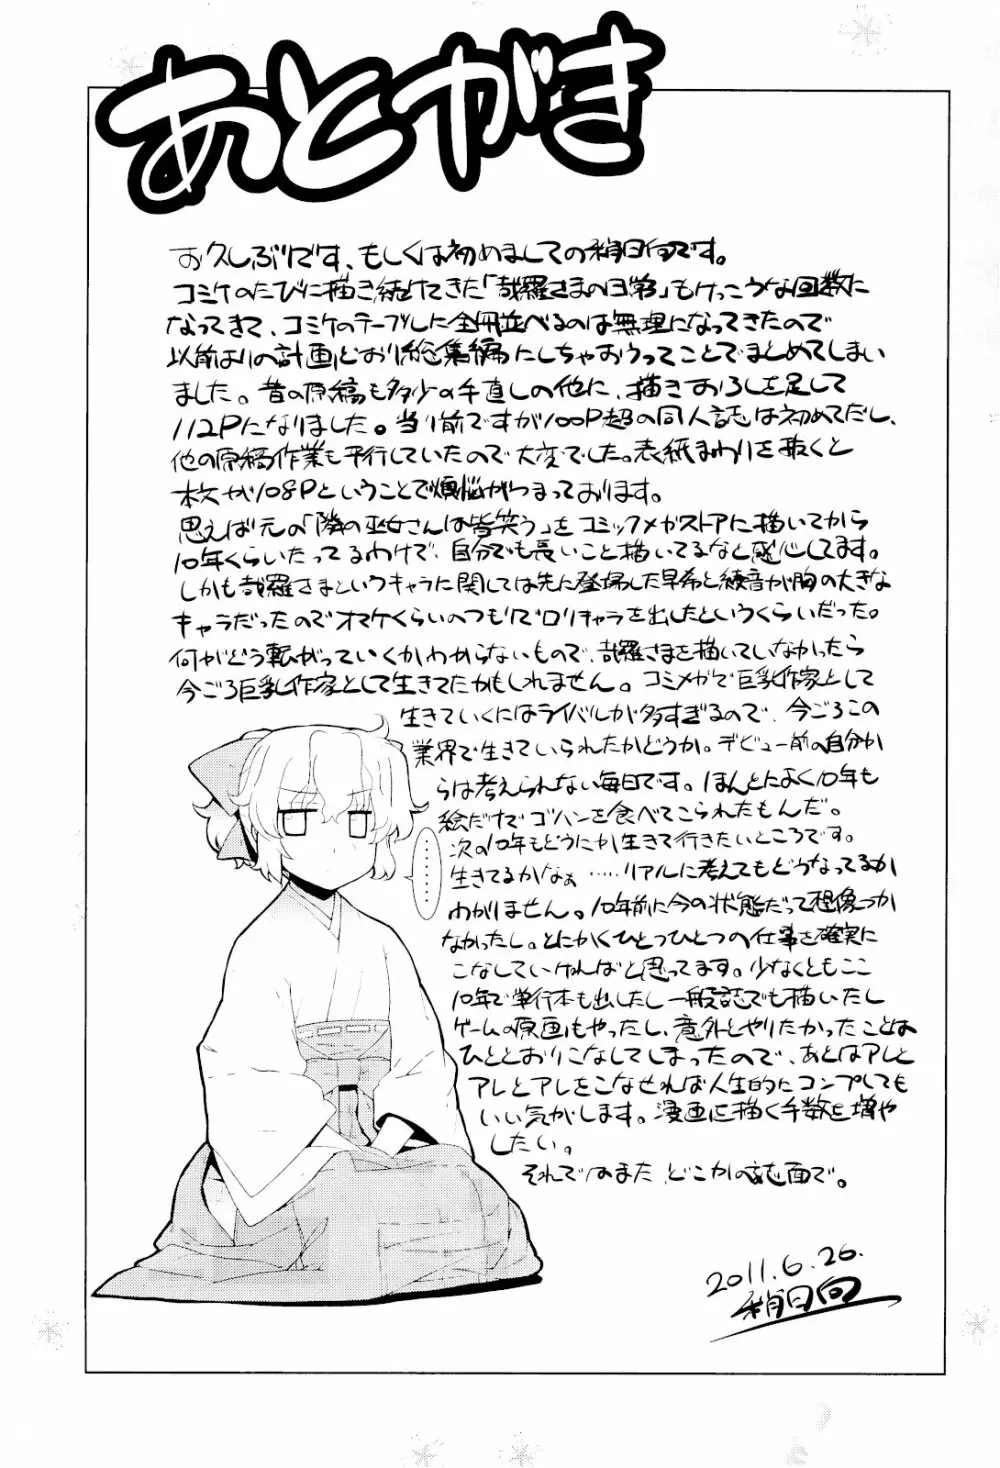 あとがき
お久しぶりです、もしくは初めましての稍日向です。
コミケのたびに描き続けてきた「哉羅さまの日常」もけっこうな回数に
なってきて、コミケのテーブルに全冊並べるのは無理になってきたので
以前よりの計画どおり総集編にしちゃおうってことでまとめてしまい
ました。昔の原稿も多少の手直しの他に、描きおろしを足して
112Pになりました。当り前ですが100P超の同人誌は初めてだし、
他の原稿作業も平行していたので大変でした。表紙まわりを抜くと
本文が108Pということで煩悩がつまっております。
思えば元の「隣の巫女さんは皆笑う」をコミックメガストアに描いてから
10年くらいたってるわけで、自分でも長いこと描いてるなと感心してます。
しかも哉羅さまというキャラに関しては先に登場した早希と綾音が胸の大きな
キャラだったのでオマケくらいのつもりでロリキャラを出したというくらいだった。
何がどう転がっていくかわからないもので、哉羅さまを描いていなかったら
今ごろ巨乳作家として生きてたかもしれません。コミメガで巨乳作家として
生きていくにはライバルが多すぎるので、今ごろこの
業界で生きていられたかどうか。デビュー前の自分か
らは考えられない毎日です。ほんとによく10年も
絵だけでゴハンを食べてこられたもんだ。
次の10年もどうにか生きて行きたいところです。
生きてるかなぁ……リアルに考えてもどうなってるか
わかりません。10年前に今の状態だって想像つか
なかったし。とにかくひとつひとつの仕事を確実に
こなしていければと思ってます。少なくともここ
10年で単行本も出したし一般誌でも描いたし
ゲームの原画もやったし、意外とやりたかったことは
ひととおりこなしてしまったので、あとはアレと
アレとアレをこなせれば人生的にコンプしても
いい気がします。漫画を描く手数を増や
したい。
それではまたどこかの誌面で。
……
2011.6.26.
稍日向